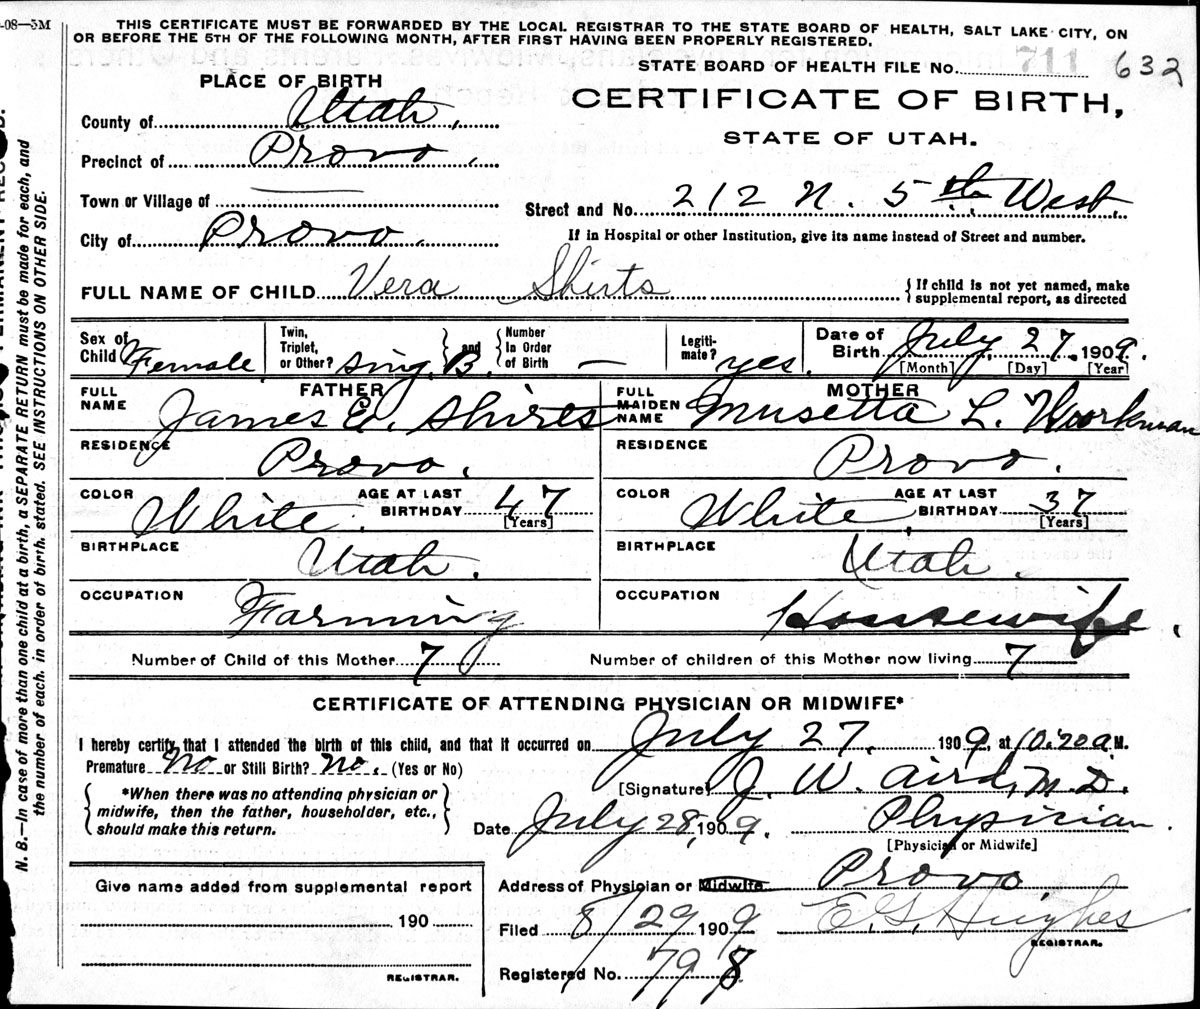 -08—3M
THIS CERTIFICATE MUST BE FORWARDED BY THE LOCAL REGISTRAR TO THE STATE BOARD OF HEALTH, SALT LAKE CITY, ON
OR BEFORE THE 5TH OF THE FOLLOWING MONTH, AFTER FIRST HAVING BEEN PROPERLY REGISTERED.
STATE BOARD OF HEALTH FILE No. 711 632
PLACE OF BIRTH
CERTIFICATE OF BIRTH,
STATE OF UTAH.
County of Utah,
Precinct of Provo.
Town or Village of
City of Provo.
Street and No. 212 N. 5th West,
If in Hospital or other Institution, give its name instead of Street and number.
FULL NAME OF CHILD Vera Shirts { If child is not yet named, make
supplemental report, as directed
Sex of Child Female | Twin, Triplet, or Other? Sing. } and { Number In Order of Birth B. — | Legiti-mate? yes. | Date of Birth July, 27, 1909.
[Month] [Day] [Year]
FATHER
FULL NAME James E. Shirts
RESIDENCE Provo.
COLOR White. AGE AT LAST BIRTHDAY 47 [Years]
BIRTHPLACE Utah.
OCCUPATION Farming
MOTHER
FULL MAIDEN NAME Musetta L. Workman
RESIDENCE Provo.
COLOR White, AGE AT LAST BIRTHDAY 37 [Years]
BIRTHPLACE Utah.
OCCUPATION Housewife.
Number of Child of this Mother 7 Number of children of this Mother now living 7
CERTIFICATE OF ATTENDING PHYSICIAN OR MIDWIFE*
I hereby certify that I attended the birth of this child, and that it occurred on July 27, 1909, at 10:20 a M.
Premature No or Still Birth? No. (Yes or No)
*When there was no attending physician or
midwife, then the father, householder, etc.,
should make this return.
[Signature] J. W. Aird, M.D.
Date July 28, 1909. Physician.
[Physician or Midwife]
Address of Physician or Midwife Provo.
Filed 8/29 1909 E. G. Hughes
REGISTRAR.
Registered No. 798
Give name added from supplemental report
190
REGISTRAR.
N. B.—In case of more than one child at a birth, a SEPARATE RETURN must be made for each, and
the number of each, in order of birth, stated. SEE INSTRUCTIONS ON OTHER SIDE.